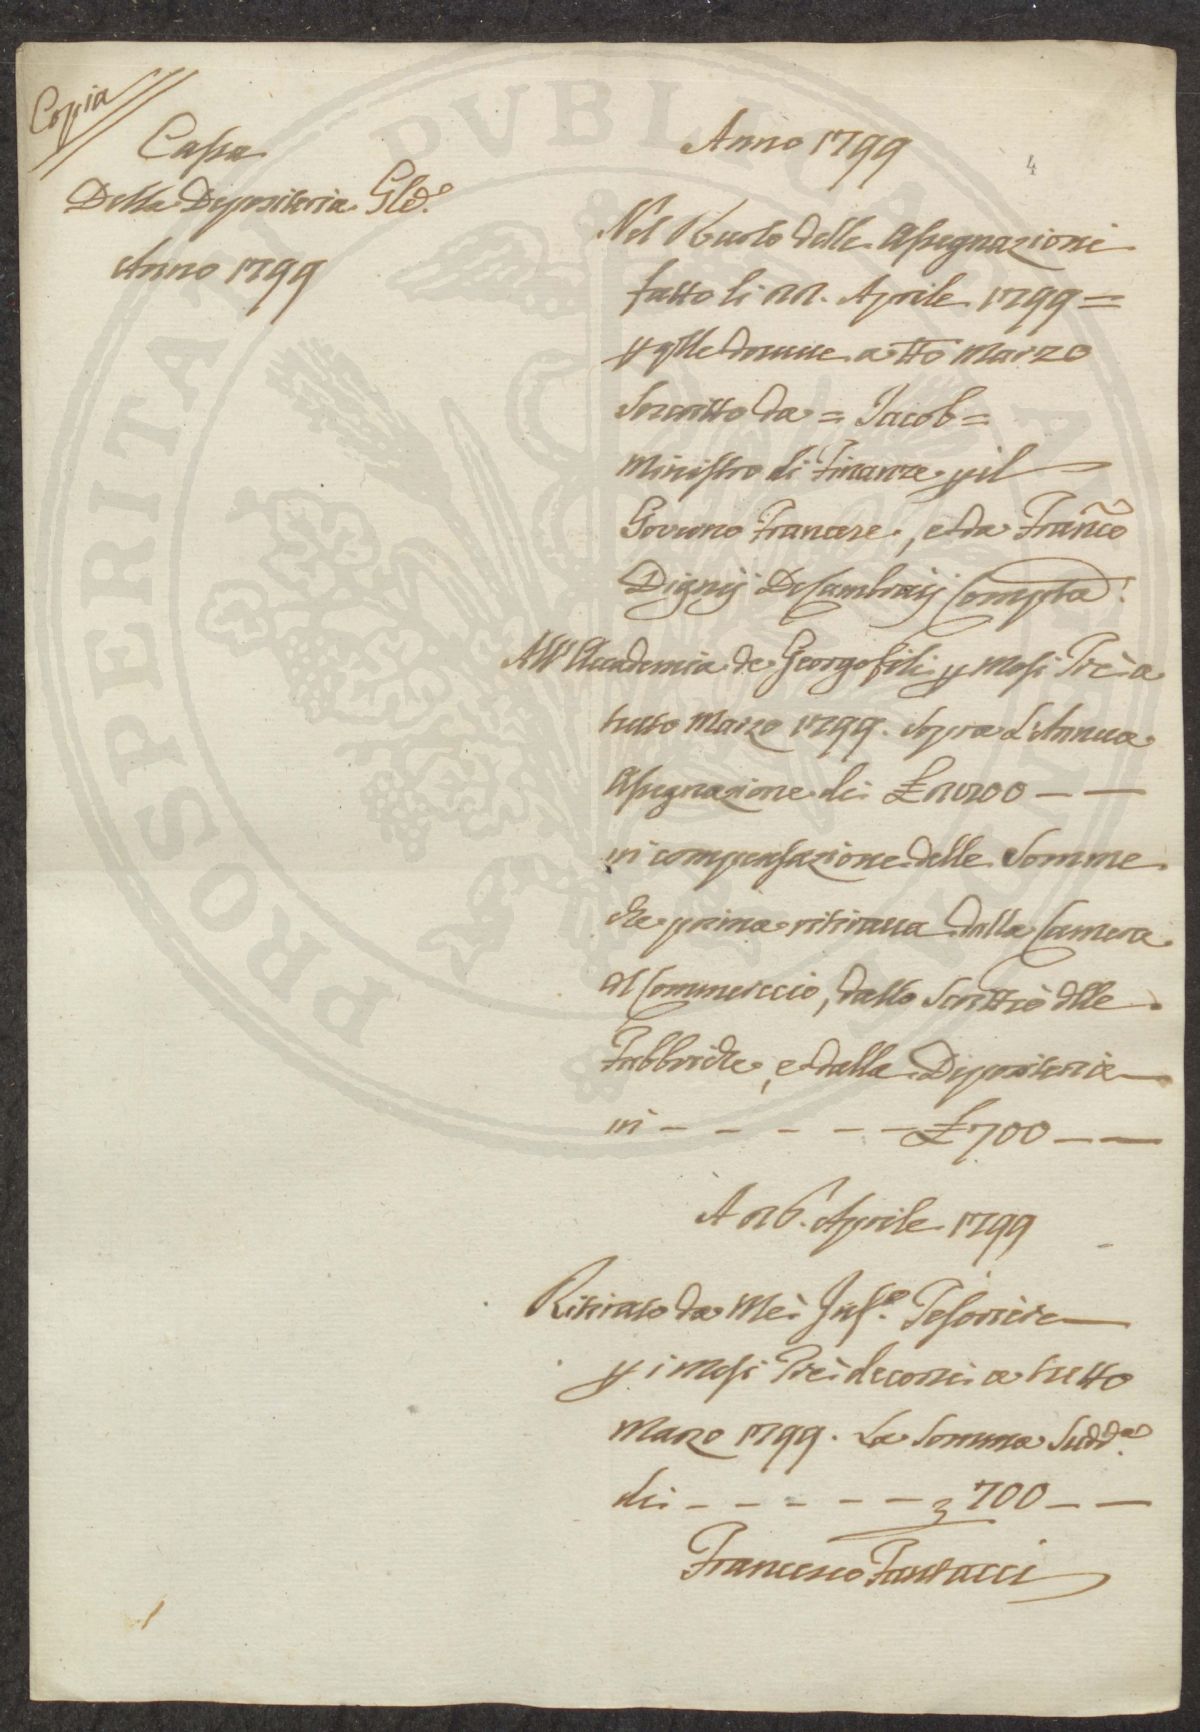 Copia
Cassa
Della Depositeria Gle.
Anno 1799
Anno 1799
4
Nel Ruolo delle Assegnazioni
fatto li 22. Aprile 1799 =
p qlle dovute a tto Marzo
Soscritto da = Jacob =
Ministro di Finanze p il
Governo Francese, e da Franco
Compta.
All' Accademia de Georgofili p Mesi Trè a
tutto Marzo 1799. Sopra L'Annua
Assegnazione di £ 2800 — —
in compensazione delle Somme
che prima ritirava dalla Camera
di Commerccio, dallo Scrittio dlle
Fabbriche, e dalla Depositeria —
in — — — — — £ 700 — —
A 26. Aprile 1799
Ritirato da Mè Info. Tesoriere —
p i Mesi Trè decorsi a tutto
Marzo 1799. La Somma Sudda.
di — — — — — 700 — —
Francesco
PROSPERITATI PVBLICAE AVGENDAE